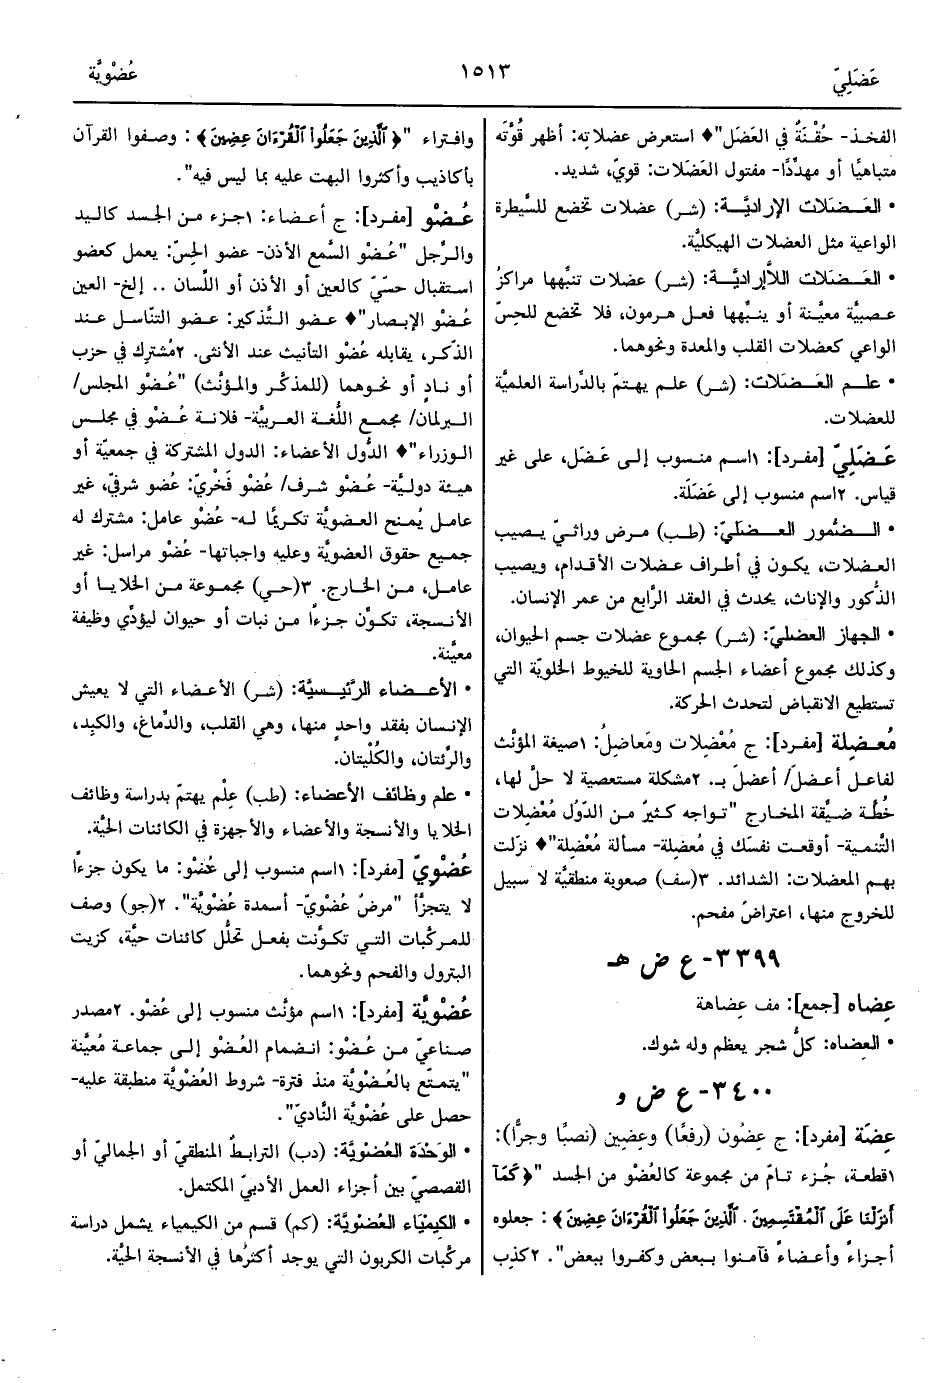 عَضَلِيّ
١٥١٣
عُضْوِيَّة
الفخذ- حُقْنَةٌ في العَضَل"♦ استعرض عضلاتِه: أظهر قُوَّتَه
متباهيًا أو مهدِّدًا- مفتول العَضَلات: قويّ، شديد.
• العَضَلات الإراديَّة: (شر) عضلات تخضع للسَّيطرة
الواعية مثل العضلات الهيكليَّة.
• العَضَلات اللاَّإراديَّة: (شر) عضلات تنبِّهها مراكزُ
عصبيَّة معيَّنة أو ينبِّهها فعل هرمون، فلا تخضع للحِسّ
الواعي كعضلات القلب والمعدة ونحوهما.
• علم العَضَلات: (شر) علم يهتمّ بالدِّراسة العلميَّة
للعضلات.
عَضَلِيّ [مفرد]: ١اسم منسوب إلى عَضَل، على غير
قياس. ٢اسم منسوب إلى عَضَلَة.
• الضُّمور العضليّ: (طب) مرض وراثيّ يصيب
العضلات، يكون في أطراف عضلات الأقدام، ويصيب
الذُّكور والإناث، يحدث في العقد الرَّابع من عمر الإنسان.
• الجهاز العضليّ: (شر) مجموع عضلات جسم الحيوان،
وكذلك مجموع أعضاء الجسم الحاوية للخيوط الخلويَّة التي
تستطيع الانقباض لتحدث الحركة.
مُعضِلة [مفرد]: ج مُعْضِلات ومَعاضِلُ: ١صيغة المؤنَّث
لفاعل أعضلَ/ أعضلَ بـ. ٢مشكلة مستعصية لا حلَّ لها،
خُطَّة ضيِّقة المخارج "تواجه كثيرٌ من الدّوُل مُعْضِلات
التَّنمية- أوقعت نفسَك في مُعضِلة- مسألة مُعْضِلة"♦ نزلَت
بهم المعضلات: الشدائد. ٣(سف) صعوبة منطقيَّة لا سبيل
للخروج منها، اعتراضٌ مفحم.
٣٣٩٩- ع ض هـ
عِضاه [جمع]: مف عِضاهة
• العِضاه: كلُّ شجر يعظم وله شوك.
٣٤٠٠- ع ض و
عِضَة [مفرد]: ج عِضُون (رفعًا) وعِضِين (نصبًا وجرًّا):
١قطعة، جُزء تامّ من مجموعة كالعُضْو من الجسد "﴿كَمَآ
أَنزَلْنَا عَلَى ٱلْمُقْتَسِمِينَ . ٱلَّذِينَ جَعَلُواْ ٱلْقُرْءَانَ عِضِينَ﴾: جعلوه
أجزاءً وأعضاءً فآمنوا ببعض وكفروا ببعض". ٢كذِب
وافتراء "﴿ٱلَّذِينَ جَعَلُواْ ٱلْقُرْءَانَ عِضِينَ﴾: وصفوا القرآن
بأكاذيب وأكثروا البهت عليه بما ليس فيه".
عُضْو [مفرد]: ج أعضاء: ١جزء من الجسد كاليد
والرِّجل "عُضْو السَّمع الأذن- عضو الحِسّ: يعمل كعضو
استقبال حسّيّ كالعين أو الأذن أو اللِّسان .. إلخ- العين
عُضْو الإبصار"♦ عضو التَّذكير: عضو التَّناسل عند
الذَّكر، يقابله عُضْو التأنيث عند الأنثى. ٢مُشترِك في حزب
أو نادٍ أو نحوهما (للمذكَّر والمؤنَّث) "عُضْو المجلس/
البرلمان/ مجمع اللُّغة العربيَّة- فلانة عُضْو في مجلس
الوزراء"♦ الدُّول الأعضاء: الدول المشتركة في جمعيَّة أو
هيئة دوليَّة- عُضْو شرف/ عُضْو فَخْريّ: عضو شرفيّ، غير
عامل يُمنح العضويَّة تكريمًا له- عُضْو عامل: مشترك له
جميع حقوق العضويَّة وعليه واجباتها- عُضْو مراسل: غير
عامل، من الخارج. ٣(حي) مجموعة من الخلايا أو
الأنسجة، تكوِّن جزءاً من نبات أو حيوان ليؤدِّي وظيفة
معيَّنة.
• الأعضاء الرَّئيسيَّة: (شر) الأعضاء التي لا يعيش
الإنسان بفقد واحدٍ منها، وهي القلب، والدِّماغ، والكبِد،
والرِّئتان، والكُلْيتان.
• علم وظائف الأعضاء: (طب) عِلْم يهتمّ بدراسة وظائف
الخلايا والأنسجة والأعضاء والأجهزة في الكائنات الحيَّة.
عُضْوِيّ [مفرد]: ١اسم منسوب إلى عُضْو: ما يكون جزءاً
لا يتجزَّأ "مرضٌ عُضْوِيّ- أسمدة عُضْوِيَّة". ٢(جو) وصف
للمركَّبات التي تكوَّنت بفعل تحلُّل كائنات حيَّة، كزيت
البترول والفحم ونحوهما.
عُضْوِيَّة [مفرد]: ١اسم مؤنَّث منسوب إلى عُضْو. ٢مصدر
صناعيّ من عُضو: انضمام العُضْو إلى جماعة مُعيَّنة
"يتمتَّع بالعُضْوِيَّة منذ فترة- شروط العُضْوِيَّة منطبقة عليه-
حصل على عُضْوِيَّة النَّاديّ".
• الوَحْدَة العُضْوِيَّة: (دب) الترابطُ المنطقيّ أو الجماليّ أو
القصصيّ بين أجزاء العمل الأدبيّ المكتمل.
• الكِيمْيَاء العُضْوِيَّة: (كم) قسم من الكيمياء يشمل دراسة
مركَّبات الكربون التي يوجد أكثرُها في الأنسجة الحيَّة.